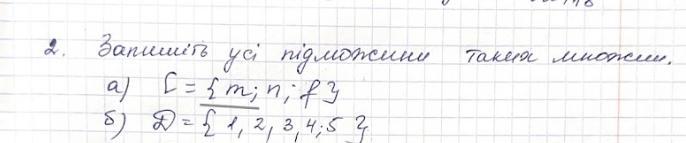 2. Запишіть усі підмножини таких множин.
а) С = {m; n; f}
б) D = {1, 2, 3, 4; 5}